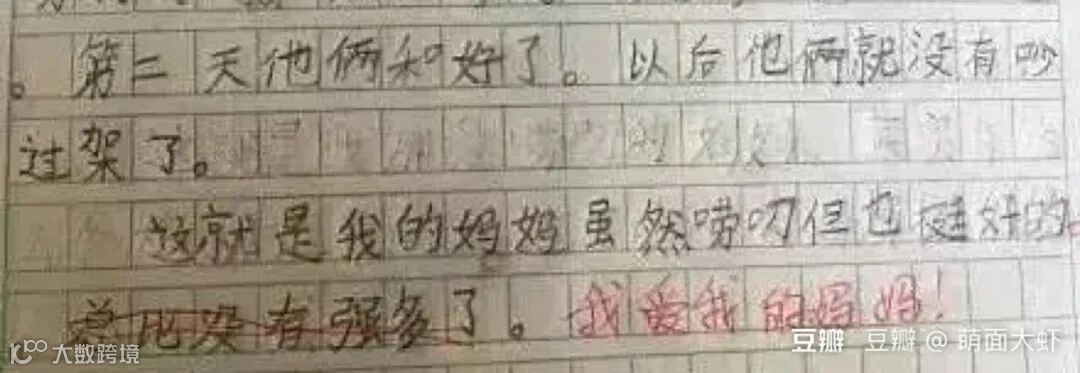 。第二天他俩和好了。以后他俩就没有吵
过架了。
这就是我的妈妈虽然唠叨但也挺好的。
总比没有强多了。我爱我的妈妈！
大数跨境
豆瓣 豆瓣@萌面大虾